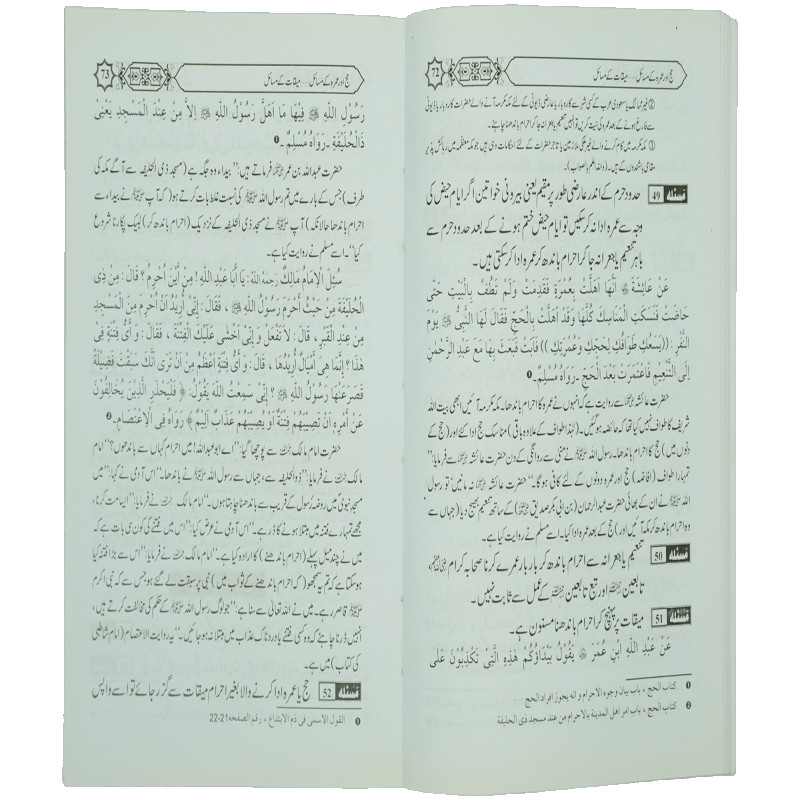 72
حج اور عمرہ کے مسائل.... میقات کے مسائل
② غیر ممالک یا سعودی عرب کے کسی شہر سے کاروبار یا عارضی ڈیوٹی کے لئے مکہ مکرمہ آنے والے حضرات کاروبار یا ڈیوٹی
سے فارغ ہونے کے بعد عمرہ کی نیت کریں تو انہیں تنعیم یا جعرانہ جا کر احرام باندھنا چاہئے۔
③ مکہ مکرمہ میں کام کرنے والے غیر ملکی ملازمین یا تاجر حضرات کے لئے احکامات وہی ہیں جو مکہ معظمہ میں رہائش پذیر
مقامی باشندوں کے ہیں۔ (واللہ اعلم بالصواب)
مسئلہ 49 حدود حرم کے اندر عارضی طور پر مقیم یعنی بیرونی خواتین اگر ایام حیض کی
وجہ سے عمرہ ادا نہ کر سکیں تو ایام حیض ختم ہونے کے بعد حدود حرم سے
باہر تنعیم یا جعرانہ جا کر احرام باندھ کر عمرہ ادا کر سکتی ہیں۔
عَنْ عَائِشَةَ ؓ أَنَّهَا أَهَلَّتْ بِعُمْرَةٍ فَقَدِمَتْ وَلَمْ تَطُفْ بِالْبَيْتِ حَتَّى
حَاضَتْ فَنَسَكَتِ الْمَنَاسِكَ كُلَّهَا وَقَدْ أَهَلَّتْ بِالْحَجِّ فَقَالَ لَهَا النَّبِيُّ ﷺ يَوْمَ
النَّفْرِ : ((يَسَعُكِ طَوَافُكِ لِحَجِّكِ وَعُمْرَتِكِ)) فَأَبَتْ فَبَعَثَ بِهَا مَعَ عَبْدِ الرَّحْمٰنِ
إِلَى التَّنْعِيمِ فَاعْتَمَرَتْ بَعْدَ الْحَجِّ ۔ رَوَاهُ مُسْلِمٌ ۔ ❶
حضرت عائشہ ؓ سے روایت ہے کہ انہوں نے عمرہ کا احرام باندھا۔ مکہ مکرمہ آئیں ابھی بیت اللہ
شریف کا طواف نہیں کیا تھا کہ حائضہ ہو گئیں۔ (لہٰذا طواف کے علاوہ باقی) مناسک حج ادا کئے اور (حج کے
دنوں میں) حج کا احرام باندھا۔ رسول اللہ ﷺ نے منیٰ سے روانگی کے دن حضرت عائشہ ؓ سے فرمایا:"
تمہارا طواف (افاضہ) حج اور عمرہ دونوں کے لئے کافی ہو گا۔" حضرت عائشہ ؓ نہ مانیں تو رسول
اللہ ﷺ نے ان کے بھائی حضرت عبدالرحمان (بن ابی بکر صدیق ؓ) کے ساتھ تنعیم بھیج دیا (جہاں سے
وہ احرام باندھ کر مکہ آئیں اور) حج کے بعد عمرہ ادا کیا۔ اسے مسلم نے روایت کیا ہے۔
مسئلہ 50 تنعیم یا جعرانہ سے احرام باندھ کر بار بار عمرے کرنا صحابہ کرام ؓ،
تابعین ؒ اور تبع تابعین ؒ کے عمل سے ثابت نہیں۔
مسئلہ 51 میقات پر پہنچ کر احرام باندھنا مسنون ہے۔
عَنْ عَبْدِ اللهِ ابْنِ عُمَرَ ؓ يَقُولُ بَيْدَاؤُكُمْ هٰذِهِ الَّتِي تَكْذِبُونَ عَلَى
❶ كتاب الحج ، باب بيان وجوه الاحرام و انه يجوز افراد الحج
❷ كتاب الحج ، باب امر اهل المدينة بالاحرام من عند مسجد ذى الحليفة
73
حج اور عمرہ کے مسائل.... میقات کے مسائل
رَسُولِ اللهِ ﷺ فِيهَا مَا أَهَلَّ رَسُولُ اللهِ ﷺ إِلاَّ مِنْ عِنْدِ الْمَسْجِدِ يَعْنِي
ذَا الْحُلَيْفَةِ ۔ رَوَاهُ مُسْلِمٌ ۔ ❶
حضرت عبداللہ بن عمر ؓ فرماتے ہیں:"بیداء وہ جگہ ہے (مسجد ذی الحلیفہ سے آگے مکہ کی
طرف) جس کے بارے میں تم رسول اللہ ﷺ کی نسبت غلط بات کرتے ہو (کہ آپ ﷺ نے بیداء سے
احرام باندھا حالانکہ) آپ ﷺ نے مسجد ذی الحلیفہ کے نزدیک (احرام باندھ کر) لبیک پکارنا شروع
کیا"۔ اسے مسلم نے روایت کیا ہے۔
سُئِلَ الْإِمَامُ مَالِكٌ رَحِمَهُ اللهُ : يَا أَبَا عَبْدِ اللهِ ! مِنْ أَيْنَ أُحْرِمُ ؟ قَالَ : مِنْ ذِي
الْحُلَيْفَةِ مِنْ حَيْثُ أَحْرَمَ رَسُولُ اللهِ ﷺ ، فَقَالَ : إِنِّي أُرِيدُ أَنْ أُحْرِمَ مِنَ الْمَسْجِدِ
مِنْ عِنْدِ الْقَبْرِ ، قَالَ : لاَ تَفْعَلْ وَإِنِّي أَخْشَى عَلَيْكَ الْفِتْنَةَ ، فَقَالَ : وَ أَيُّ فِتْنَةٍ فِي
هٰذَا ؟ إِنَّمَا هِيَ أَمْيَالٌ أُرِيدُهَا ، قَالَ : وَأَيُّ فِتْنَةٍ أَعْظَمُ مِنْ أَنْ تَرَى أَنَّكَ سَبَقْتَ فَضِيلَةً
قَصَرَ عَنْهَا رَسُولُ اللهِ ﷺ ؟ إِنِّي سَمِعْتُ اللهَ يَقُولُ: ﴿ فَلْيَحْذَرِ الَّذِينَ يُخَالِفُونَ
عَنْ أَمْرِهِ أَنْ تُصِيبَهُمْ فِتْنَةٌ أَوْ يُصِيبَهُمْ عَذَابٌ أَلِيمٌ ﴾ رَوَاهُ فِي الْاِعْتِصَامِ ۔ ❷
حضرت امام مالک ؒ سے پوچھا گیا:"اے ابو عبداللہ! میں احرام کہاں سے باندھوں؟" امام
مالک ؒ نے فرمایا:"ذوالحلیفہ سے، جہاں سے رسول اللہ ﷺ نے باندھا۔" اس آدمی نے کہا:"میں
مسجد نبوی میں روضہ رسول ﷺ کے قریب سے باندھنا چاہتا ہوں۔" امام مالک ؒ نے فرمایا:"ایسا مت کرنا،
مجھے تمہارے فتنہ میں مبتلا ہونے کا ڈر ہے۔" اس آدمی نے عرض کیا:"اس میں فتنے کی کون سی بات ہے کہ
میں نے چند میل پہلے (احرام باندھنے) کا ارادہ کیا ہے۔" امام مالک ؒ نے فرمایا:"اس سے بڑا فتنہ کیا
ہو سکتا ہے کہ تم یہ سمجھو (کہ احرام باندھنے کے ثواب میں) نبی پر سبقت لے گئے ہو جس سے کہ نبی اکرم
ﷺ قاصر رہے۔ میں نے اللہ تعالیٰ سے سنا ہے:"جو لوگ رسول اللہ ﷺ کے حکم کی مخالفت کرتے ہیں،
انہیں ڈرنا چاہئے کہ وہ کسی فتنے یا دردناک عذاب میں مبتلا نہ ہو جائیں۔" یہ روایت الاعتصام (امام شاطبی
کی کتاب) میں ہے۔
مسئلہ 52 حج یا عمرہ ادا کرنے والا بغیر احرام میقات سے گزر جائے تو اسے واپس
❶ القول الاسمى فى ذم الابتداع ، رقم الصفحه 21-22